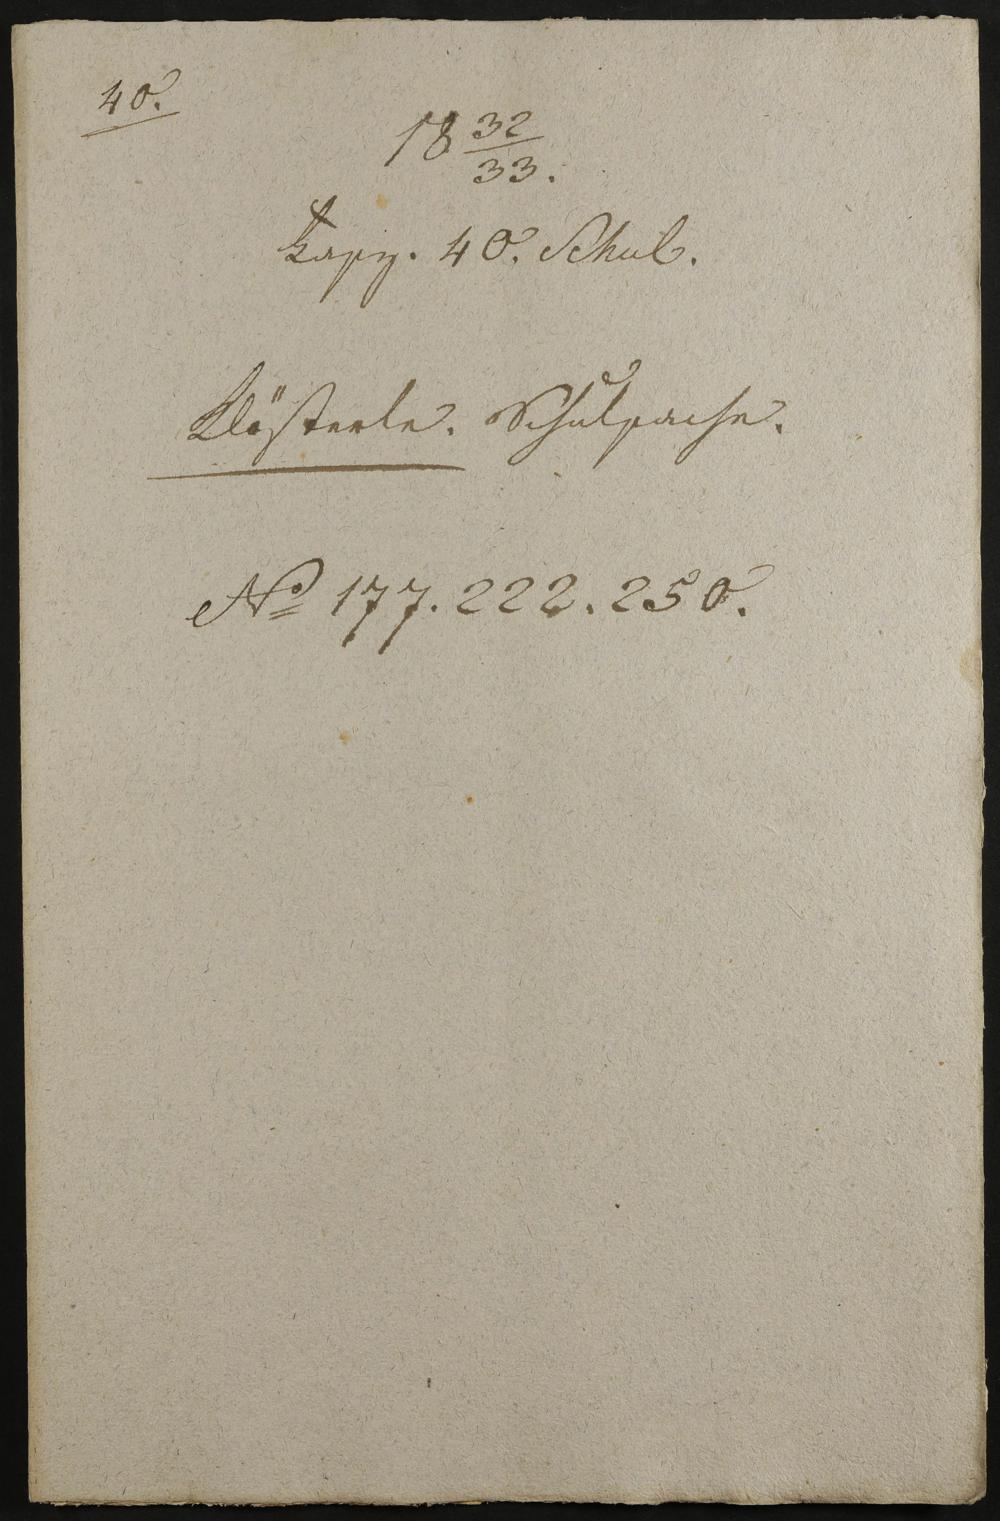 40.
18 32/33.
Kapz. 40. Schul.
Klösterle. Schulsache.
No 177. 222. 250.